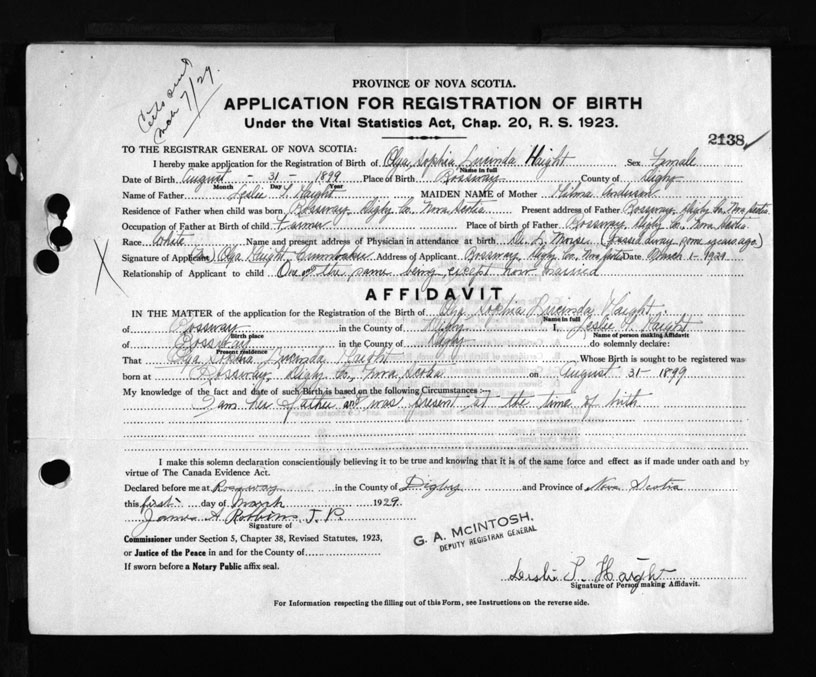 Certs sent
Mar 7/29.
PROVINCE OF NOVA SCOTIA.
APPLICATION FOR REGISTRATION OF BIRTH
Under the Vital Statistics Act, Chap. 20, R. S. 1923.
2138
TO THE REGISTRAR GENERAL OF NOVA SCOTIA:
I hereby make application for the Registration of Birth of Olga Sophia Lucinda Haight Sex Female
Name in full
Date of Birth August - 31 - 1899 Place of Birth Rossway County of Digby
Month Day Year
Name of Father Leslie Haight MAIDEN NAME of Mother Anderson
Residence of Father when child was born Rossway, Digby Co. Nova Scotia Present address of Father Rossway, Digby Co. Nova Scotia
Occupation of Father at Birth of Child Farmer Place of birth of Father Rossway, Digby Co. Nova Scotia
Race White Name and present address of Physician in attendance at birth Dr. L. Morse (passed away some years ago)
Signature of Applicant Olga Haight Address of Applicant Rossway Digby Co. Nova Scotia Date March 1 - 1929
Relationship of Applicant to child One of the same being, except now married
AFFIDAVIT
IN THE MATTER of the application for the Registration of Birth of Olga Sophia Lucinda Haight
Name in full
of Rossway in the County of Digby I, Leslie Haight
Birth place Name of person making Affidavit
of Rossway in the County of Digby do solemnly declare:
Present residence
That Olga Sophia Lucinda Haight Whose Birth is sought to be registered was
born at Rossway, Digby Co, Nova Scotia on August 31 - 1899
My knowledge of the fact and date of such Birth is based on the following Circumstances :—
I am her father and was present at the time of birth
I make this solemn declaration conscientiously believing it to be true and knowing that it is of the same force and effect as if made under oath and by
virtue of The Canada Evidence Act.
Declared before me at Rossway in the County of Digby and Province of Nova Scotia
this first day of March 1929.
James A Robbins J. P.
Signature of
Commissioner under Section 5, Chapter 38, Revised Statutes, 1923,
or Justice of the Peace in and for the County of
If sworn before a Notary Public affix seal.
G. A. McINTOSH,
DEPUTY REGISTRAR GENERAL
Leslie Haight
Signature of Person making Affidavit.
For Information respecting the filling out of this Form, see Instructions on the reverse side.